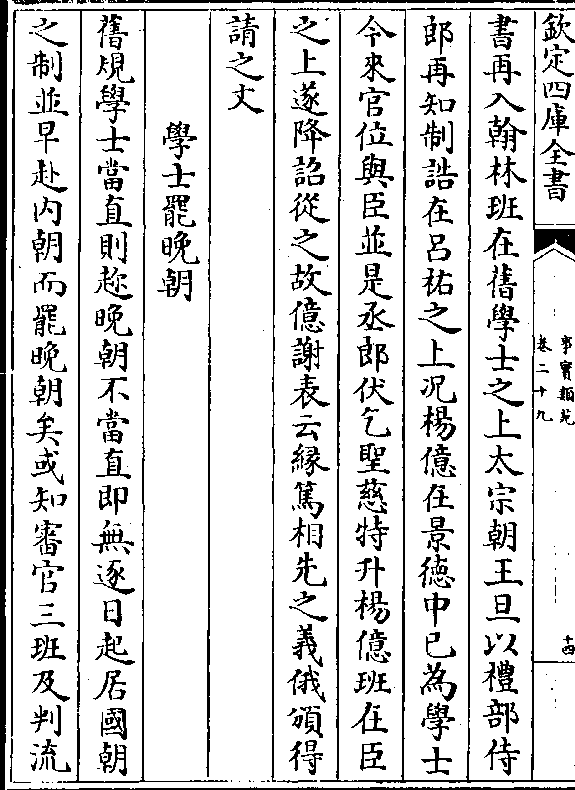 欽定四庫全書
事實類苑
卷二十九
十四
書再入翰林班在舊學士之上太宗朝王旦以禮部侍
郎再知制誥在呂祐之上况楊億在景徳中已為學士
今來官位與臣並是丞郎伏乞聖慈特升楊億班在臣
之上遂降詔從之故億謝表云縁篤相先之義俄頒得
請之文
學士罷晚朝
舊規學士當直則趂晚朝不當直即無逐日起居國朝
之制並早赴内朝而罷晚朝矣或知審官三班及判流